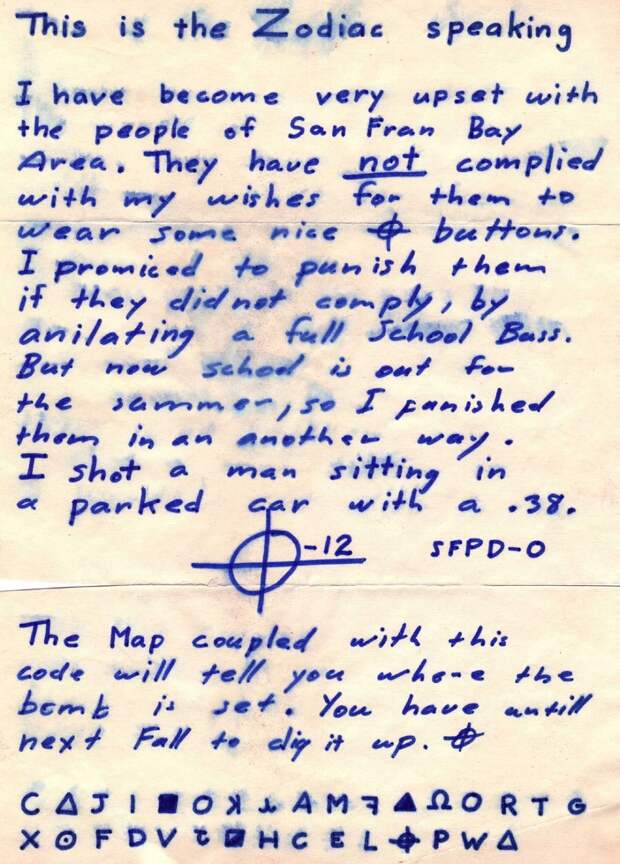 This is the Zodiac speaking
I have become very upset with
the people of San Fran Bay
Area. They have not complied
with my wishes for them to
wear some nice ⌖ buttons.
I promiced to punish them
if they did not comply, by
anilating a full School Buss.
But now school is out for
the summer, so I punished
them in an another way.
I shot a man sitting in
a parked car with a .38.
⌖-12 SFPD-0
The Map coupled with this
code will tell you where the
bomb is set. You have untill
next Fall to dig it up. ⌖
C Δ J I ■ O ʞ A M ꟻ ▲ Ω O R T G
X ⊙ F D V ◪ H C E L ⌖ P W Δ